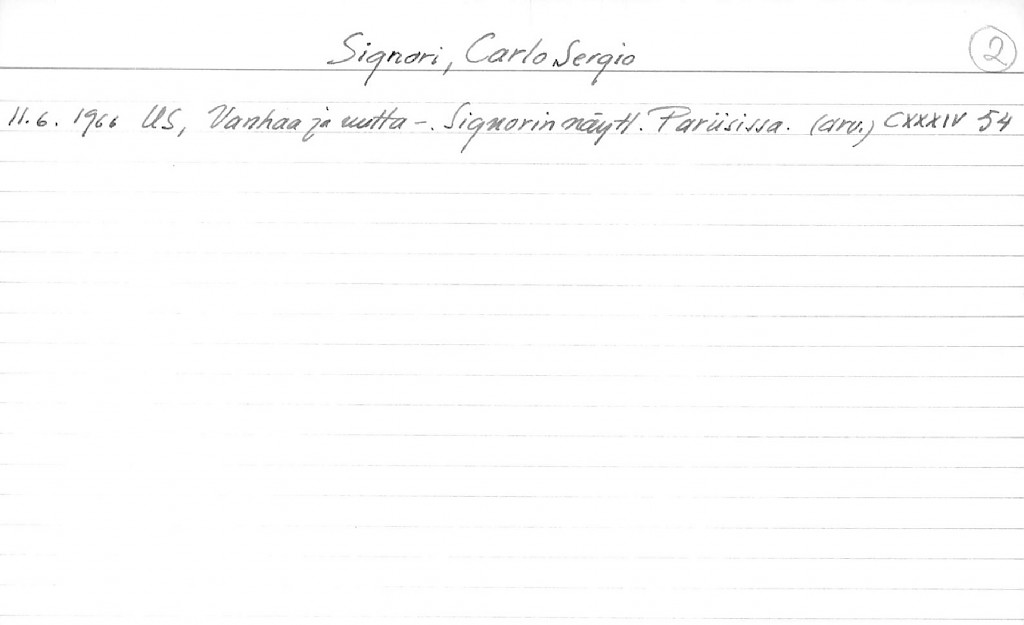 Signori, Carlo Sergio
2
11.6. 1966 US, Vanhaa ja uutta -. Signorin näytt. Pariisissa. (arv.) CXXXIV 54